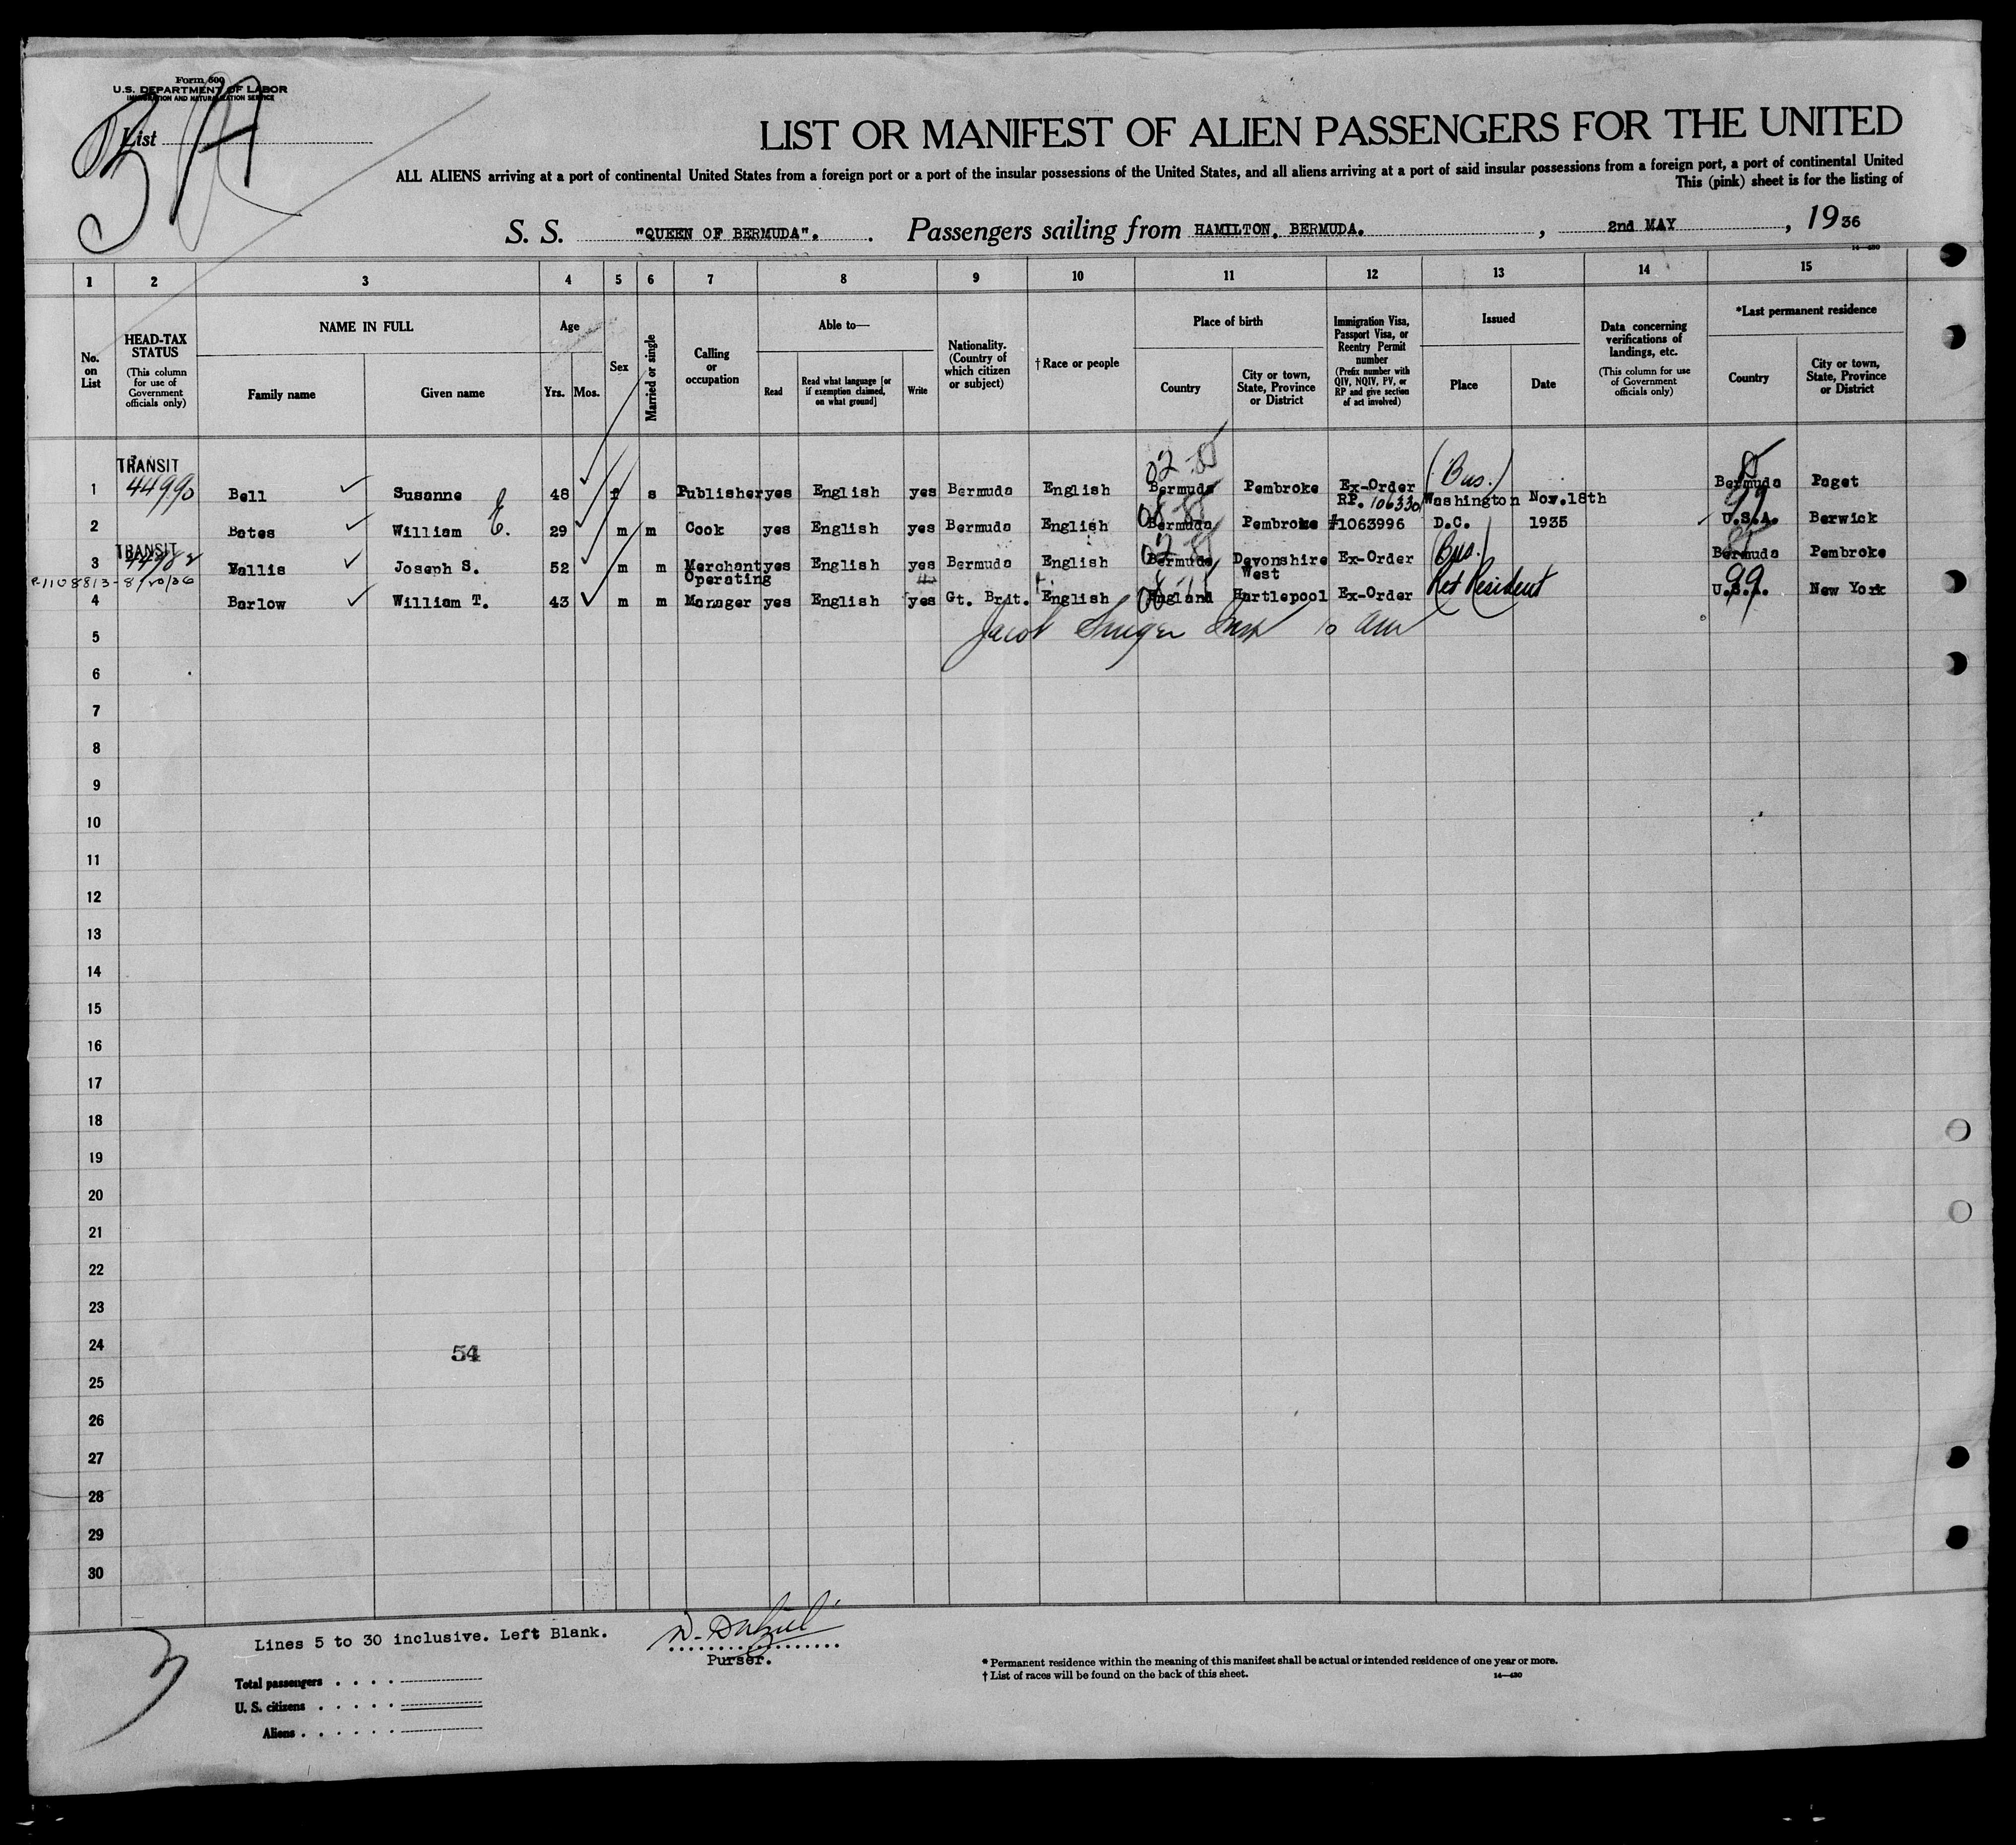 Form 500
U.S. DEPARTMENT OF LABOR
IMMIGRATION AND NATURALIZATION SERVICE
List
3 A
LIST OR MANIFEST OF ALIEN PASSENGERS FOR THE UNITED
ALL ALIENS arriving at a port of continental United States from a foreign port or a port of the insular possessions of the United States, and all aliens arriving at a port of said insular possessions from a foreign port, a port of continental United
This (pink) sheet is for the listing of
S. S. "QUEEN OF BERMUDA". Passengers sailing from HAMILTON. BERMUDA. , 2nd MAY , 1936
14—430
1 2 3 4 5 6 7 8 9 10 11 12 13 14 15
No. on List
HEAD-TAX STATUS (This column for use of Government officials only)
NAME IN FULL
Family name
Given name
Age
Yrs.
Mos.
Sex
Married or single
Calling or occupation
Able to—
Read
Read what language [or if exemption claimed, on what ground]
Write
Nationality. (Country of which citizen or subject)
† Race or people
Place of birth
Country
City or town, State, Province or District
Immigration Visa, Passport Visa, or Reentry Permit number (Prefix number with QIV, NQIV, PV, or RP and give section of act involved)
Issued
Place
Date
Data concerning verifications of landings, etc. (This column for use of Government officials only)
*Last permanent residence
Country
City or town, State, Province or District
TRANSIT 02-85 (Bus.)
1 44990 Bell Susanne E 48 f s Publisher yes English yes Bermuda English Bermuda Pembroke Ex-Order Bermuda Paget
RP. 106330 Washington Nov.18th
2 Bates William E. 29 m m Cook yes English yes Bermuda English Bermuda Pembroke #1063996 D.C. 1935 U.S.A. Berwick
TRANSIT
3 Wallis Joseph S. 52 m m Merchant yes English yes Bermuda English Bermuda Devonshire West Ex-Order (Bus.) Bermuda Pembroke
R1108813-8/20/36
4 Barlow William T. 43 m m Operating Manager yes English yes Gt. Brit. English England Hartlepool Ex-Order Ret Resident U.S.A. New York
5 Jacob
6
7
8
9
10
11
12
13
14
15
16
17
18
19
20
21
22
23
24 54
25
26
27
28
29
30
Lines 5 to 30 inclusive. Left Blank.
Purser.
3
Total passengers
U. S. citizens
Aliens
* Permanent residence within the meaning of this manifest shall be actual or intended residence of one year or more.
† List of races will be found on the back of this sheet.
14—430